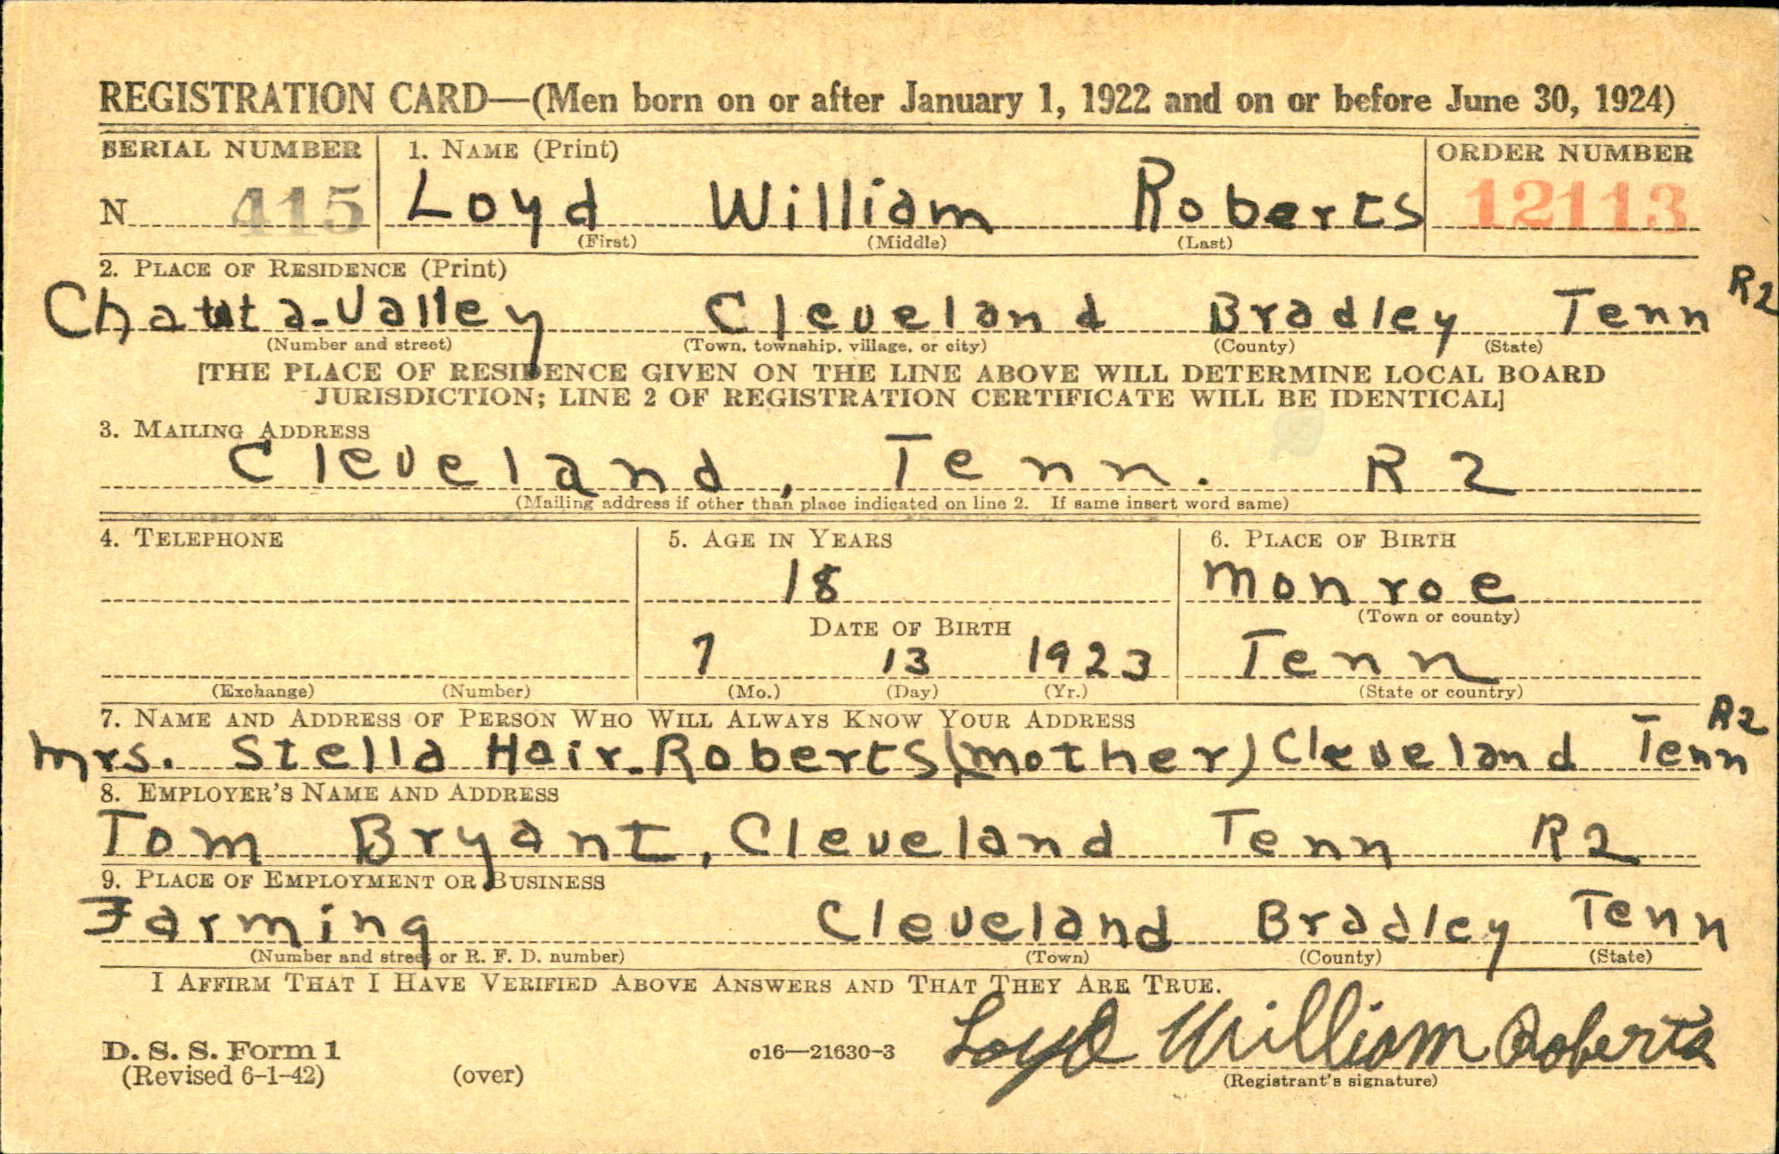 REGISTRATION CARD—(Men born on or after January 1, 1922 and on or before June 30, 1924)
SERIAL NUMBER 1. NAME (Print) ORDER NUMBER
N 415 Loyd William Roberts 12113
(First) (Middle) (Last)
2. PLACE OF RESIDENCE (Print)
Chatata-Valley Cleveland Bradley Tenn R2
(Number and street) (Town, township, village, or city) (County) (State)
[THE PLACE OF RESIDENCE GIVEN ON THE LINE ABOVE WILL DETERMINE LOCAL BOARD
JURISDICTION; LINE 2 OF REGISTRATION CERTIFICATE WILL BE IDENTICAL]
3. MAILING ADDRESS
Cleveland, Tenn. R2
(Mailing address if other than place indicated on line 2. If same insert word same)
4. TELEPHONE 5. AGE IN YEARS 6. PLACE OF BIRTH
18 Monroe
(Town or county)
DATE OF BIRTH
7 13 1923 Tenn
(Exchange) (Number) (Mo.) (Day) (Yr.) (State or country)
7. NAME AND ADDRESS OF PERSON WHO WILL ALWAYS KNOW YOUR ADDRESS
Mrs. Stella Hair Roberts (Mother) Cleveland Tenn R2
8. EMPLOYER'S NAME AND ADDRESS
Tom Bryant, Cleveland Tenn R2
9. PLACE OF EMPLOYMENT OR BUSINESS
Farming Cleveland Bradley Tenn
(Number and street or R. F. D. number) (Town) (County) (State)
I AFFIRM THAT I HAVE VERIFIED ABOVE ANSWERS AND THAT THEY ARE TRUE.
Loyd William Roberts
D. S. S. Form 1 c16—21630-3
(Revised 6-1-42) (over) (Registrant's signature)